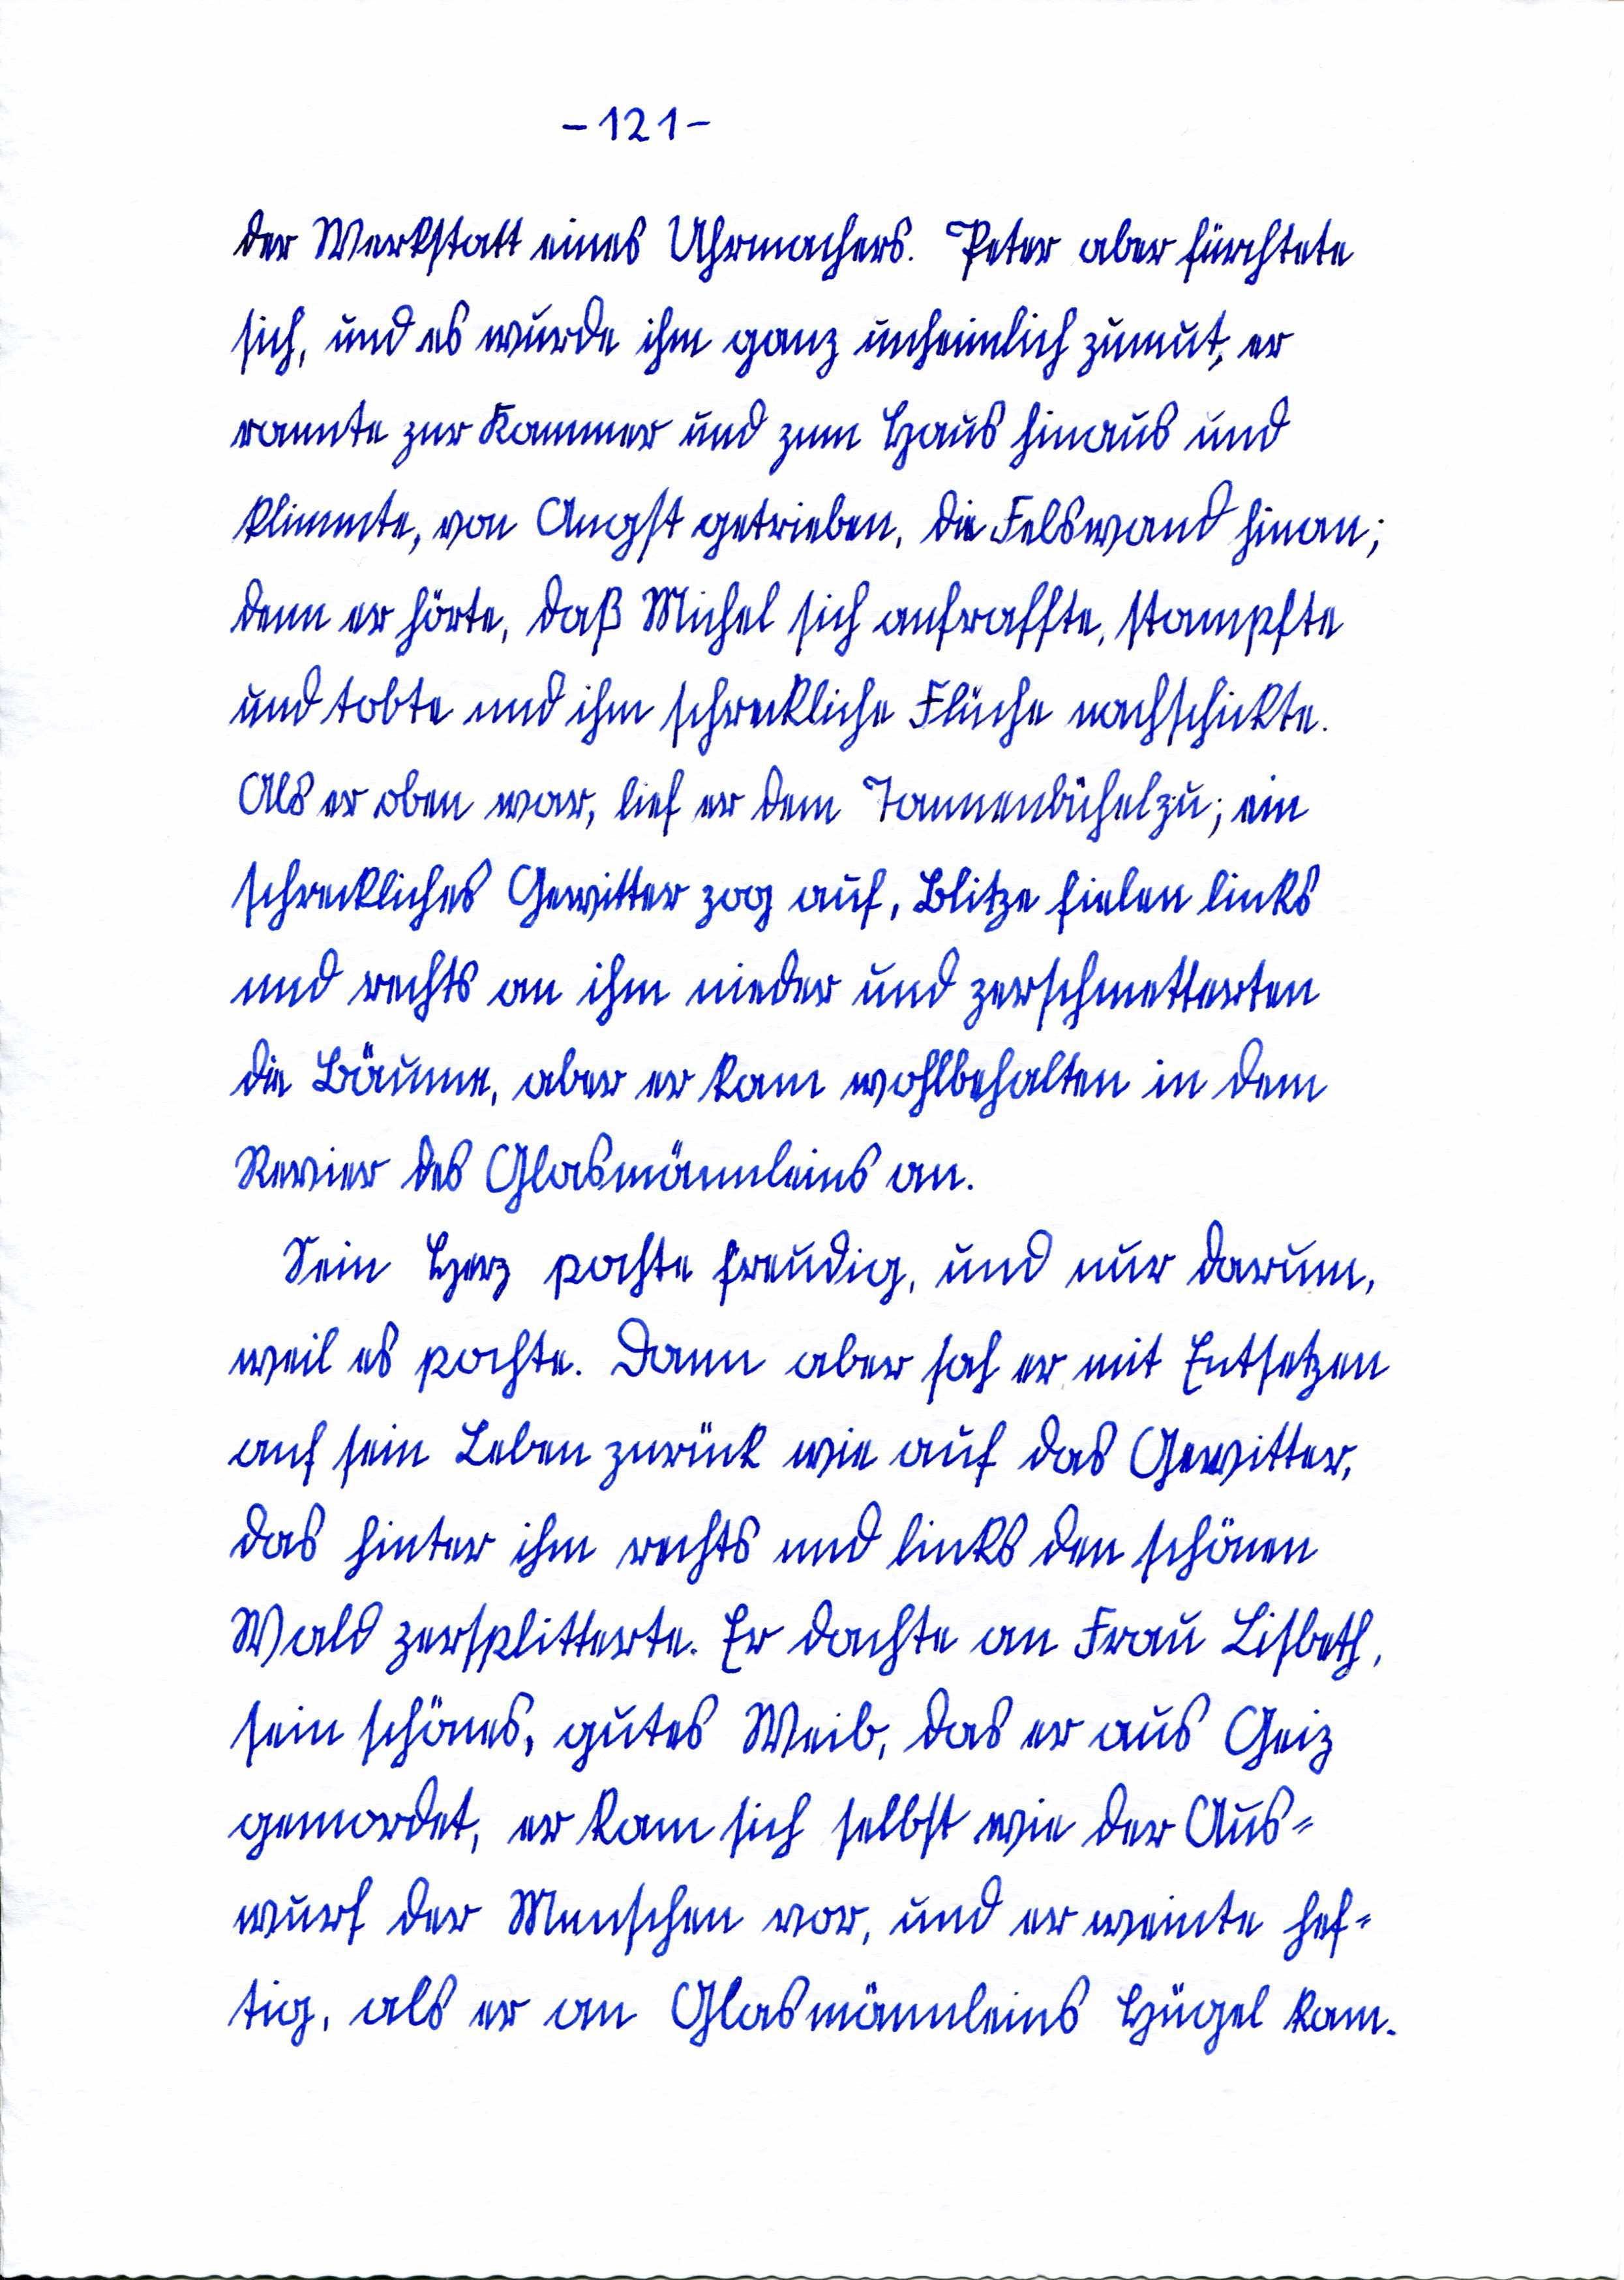 -121-
der Werkstatt eines Uhrmachers. Peter aber fürchtete
sich, und es wurde ihm ganz unheimlich zumut, er
rannte zur Kammer und zum Haus hinaus und
klimmte, von Angst getrieben, die Felswand hinan;
denn er hörte, daß Michel sich aufraffte, stampfte
und tobte und ihm schreckliche Flüche nachschickte.
Als er oben war, lief er dem Tannenbühel zu; ein
schreckliches Gewitter zog auf, Blitze fielen links
und rechts an ihm nieder und zerschmetterten
die Bäume, aber er kam wohlbehalten in dem
Revier des Glasmännleins an.
Sein Herz pochte freudig, und nur darum,
weil es pochte. Dann aber sah er mit Entsetzen
auf sein Leben zurück wie auf das Gewitter,
das hinter ihm rechts und links den schönen
Wald zersplitterte. Er dachte an Frau Lisbeth,
sein schönes, gutes Weib, das er aus Geiz
gemordet, er kam sich selbst wie der Aus=
wurf der Menschen vor, und er weinte hef=
tig, als er an Glasmännleins Hügel kam.